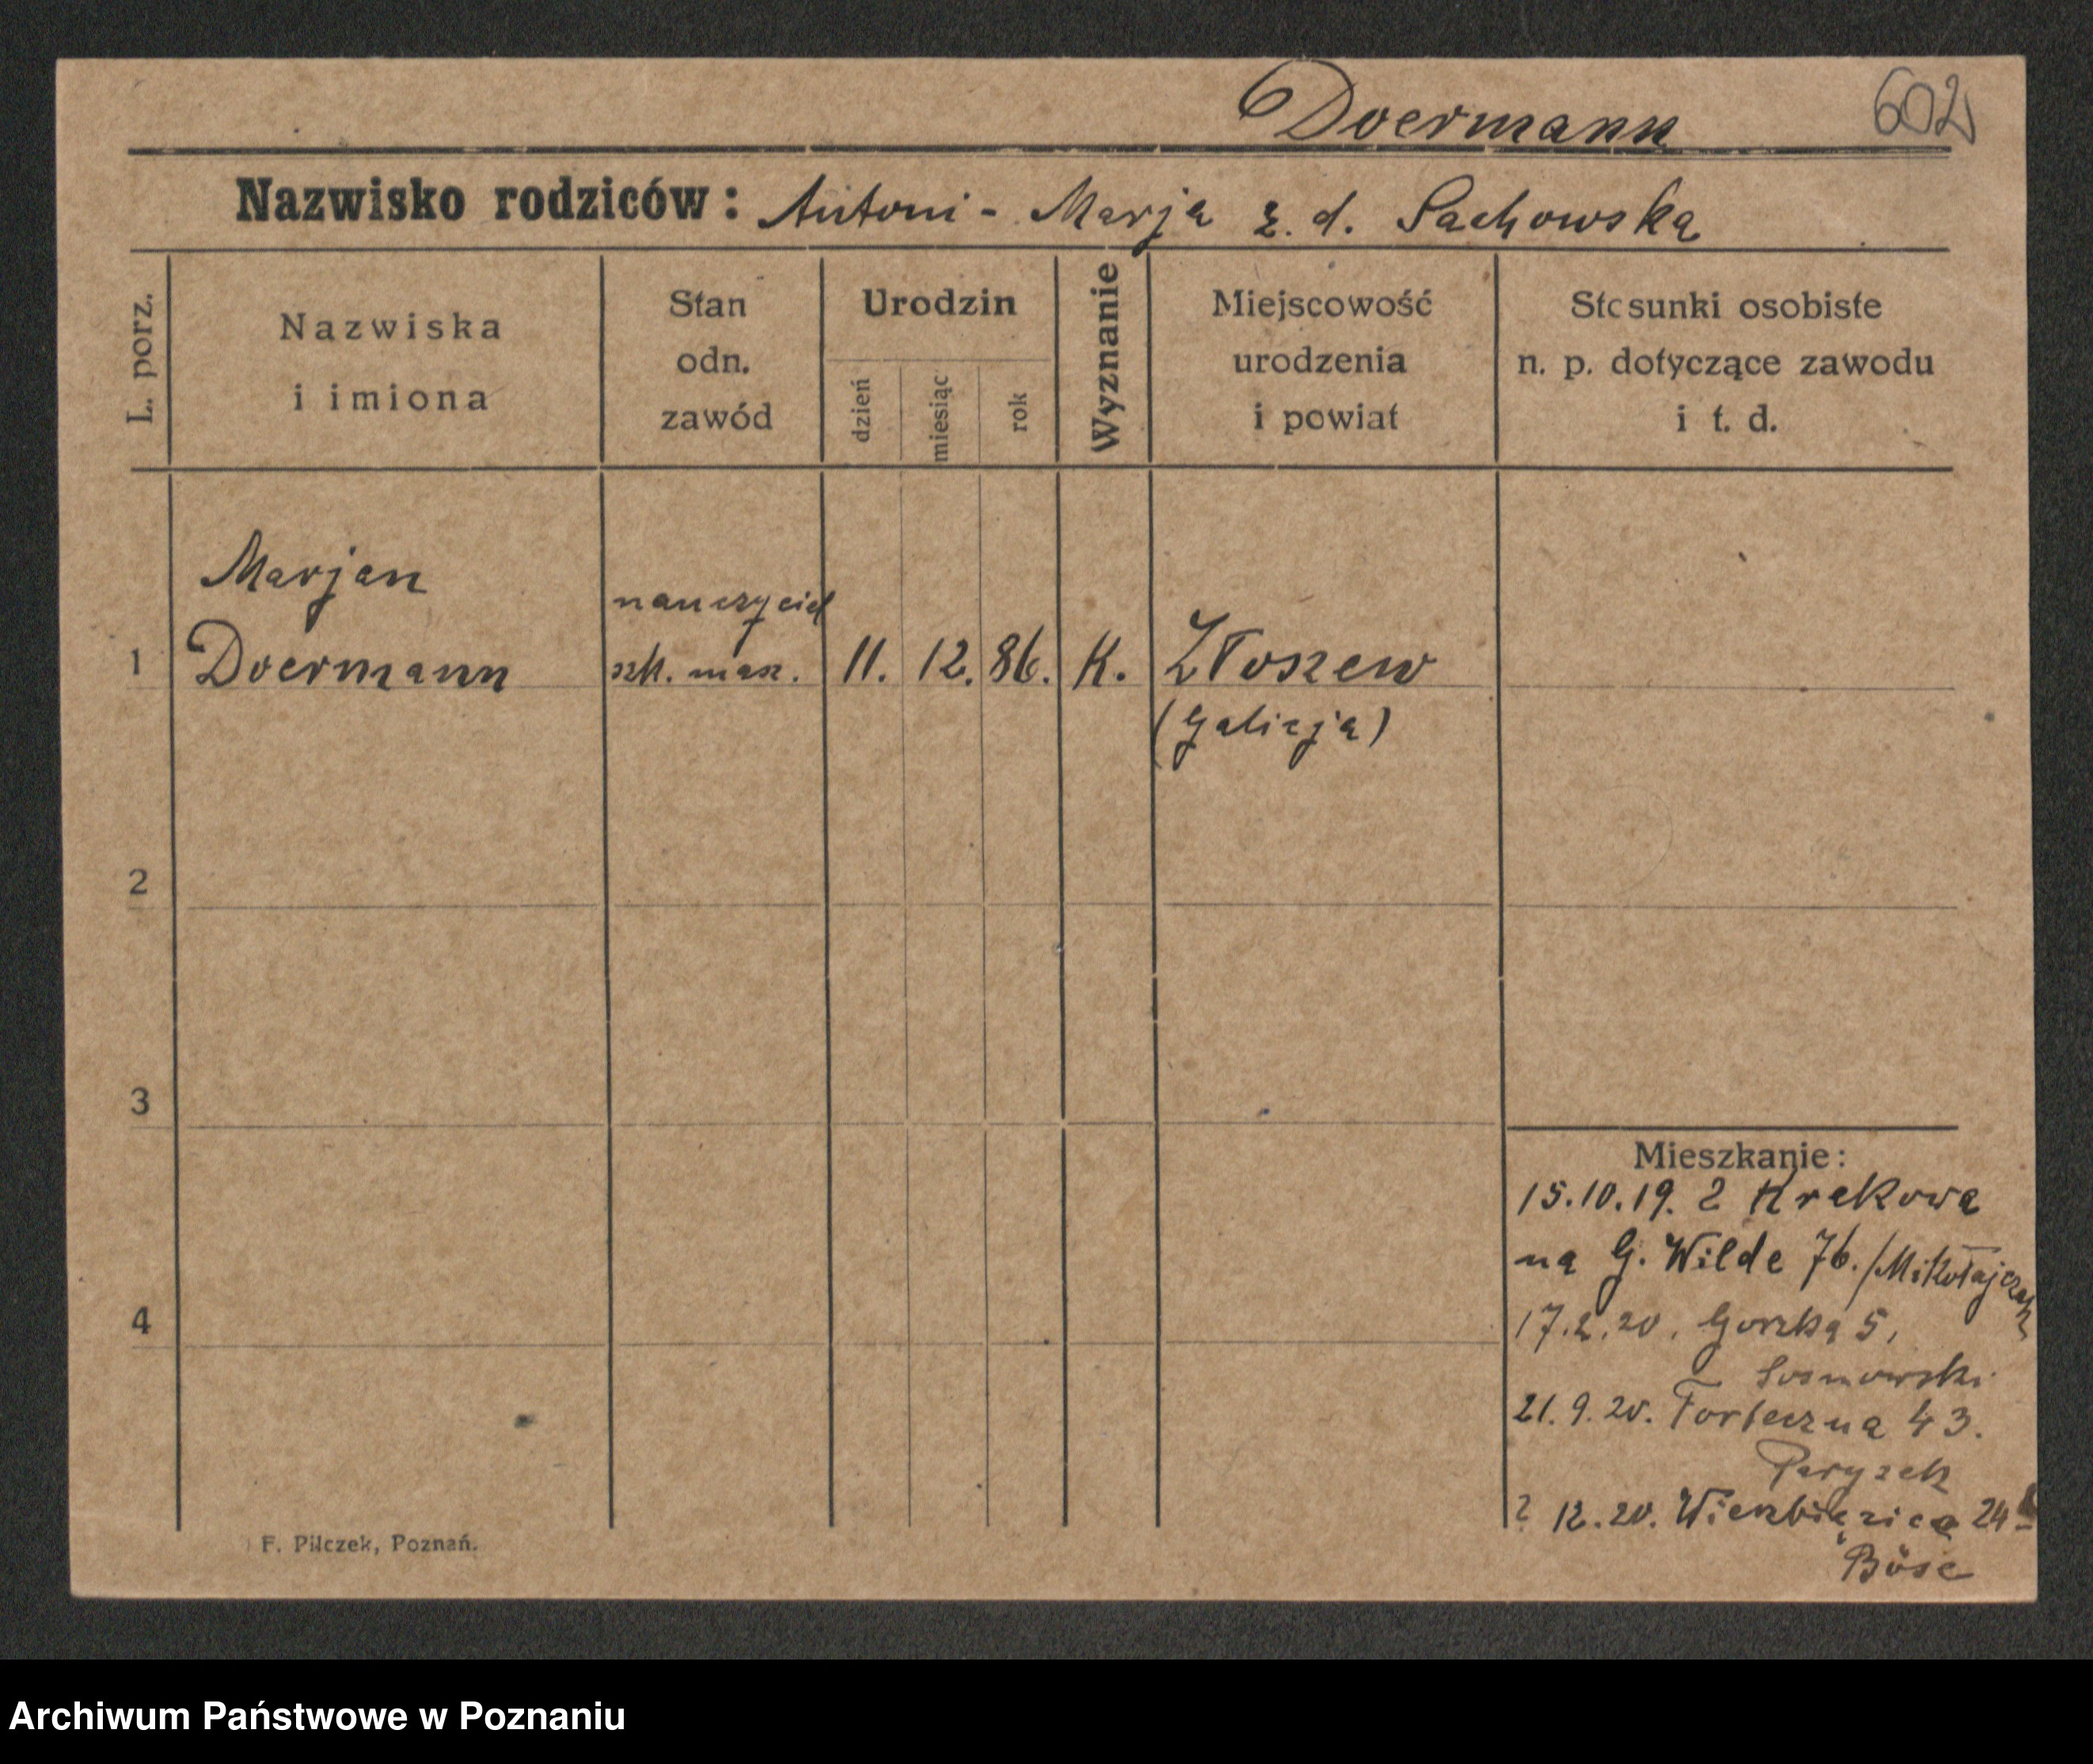 Doermann
602
Nazwisko rodziców: Antoni - Marja z. d. Sachowska
L. porz.
Nazwiska
i imiona
Stan
odn.
zawód
Urodzin
dzień
miesiąc
rok
Wyznanie
Miejscowość
urodzenia
i powiat
Stosunki osobiste
n. p. dotyczące zawodu
i t. d.
1
Marjan
Doermann
nauczyciel
szk. masz.
11. 12. 86. K.
Złoszew
(Galicja)
2
3
4
Mieszkanie:
15.10.19. z Krakowa
na G. Wilde 76. / Mikołajczak
17.2.20. Gorzka 5,
Sosnowski
21. 9. 20. Forteczna 43.
Paryzek
12. 20. Wierzbięcice 24
Böse
F. Pilczek, Poznań.
Archiwum Państwowe w Poznaniu